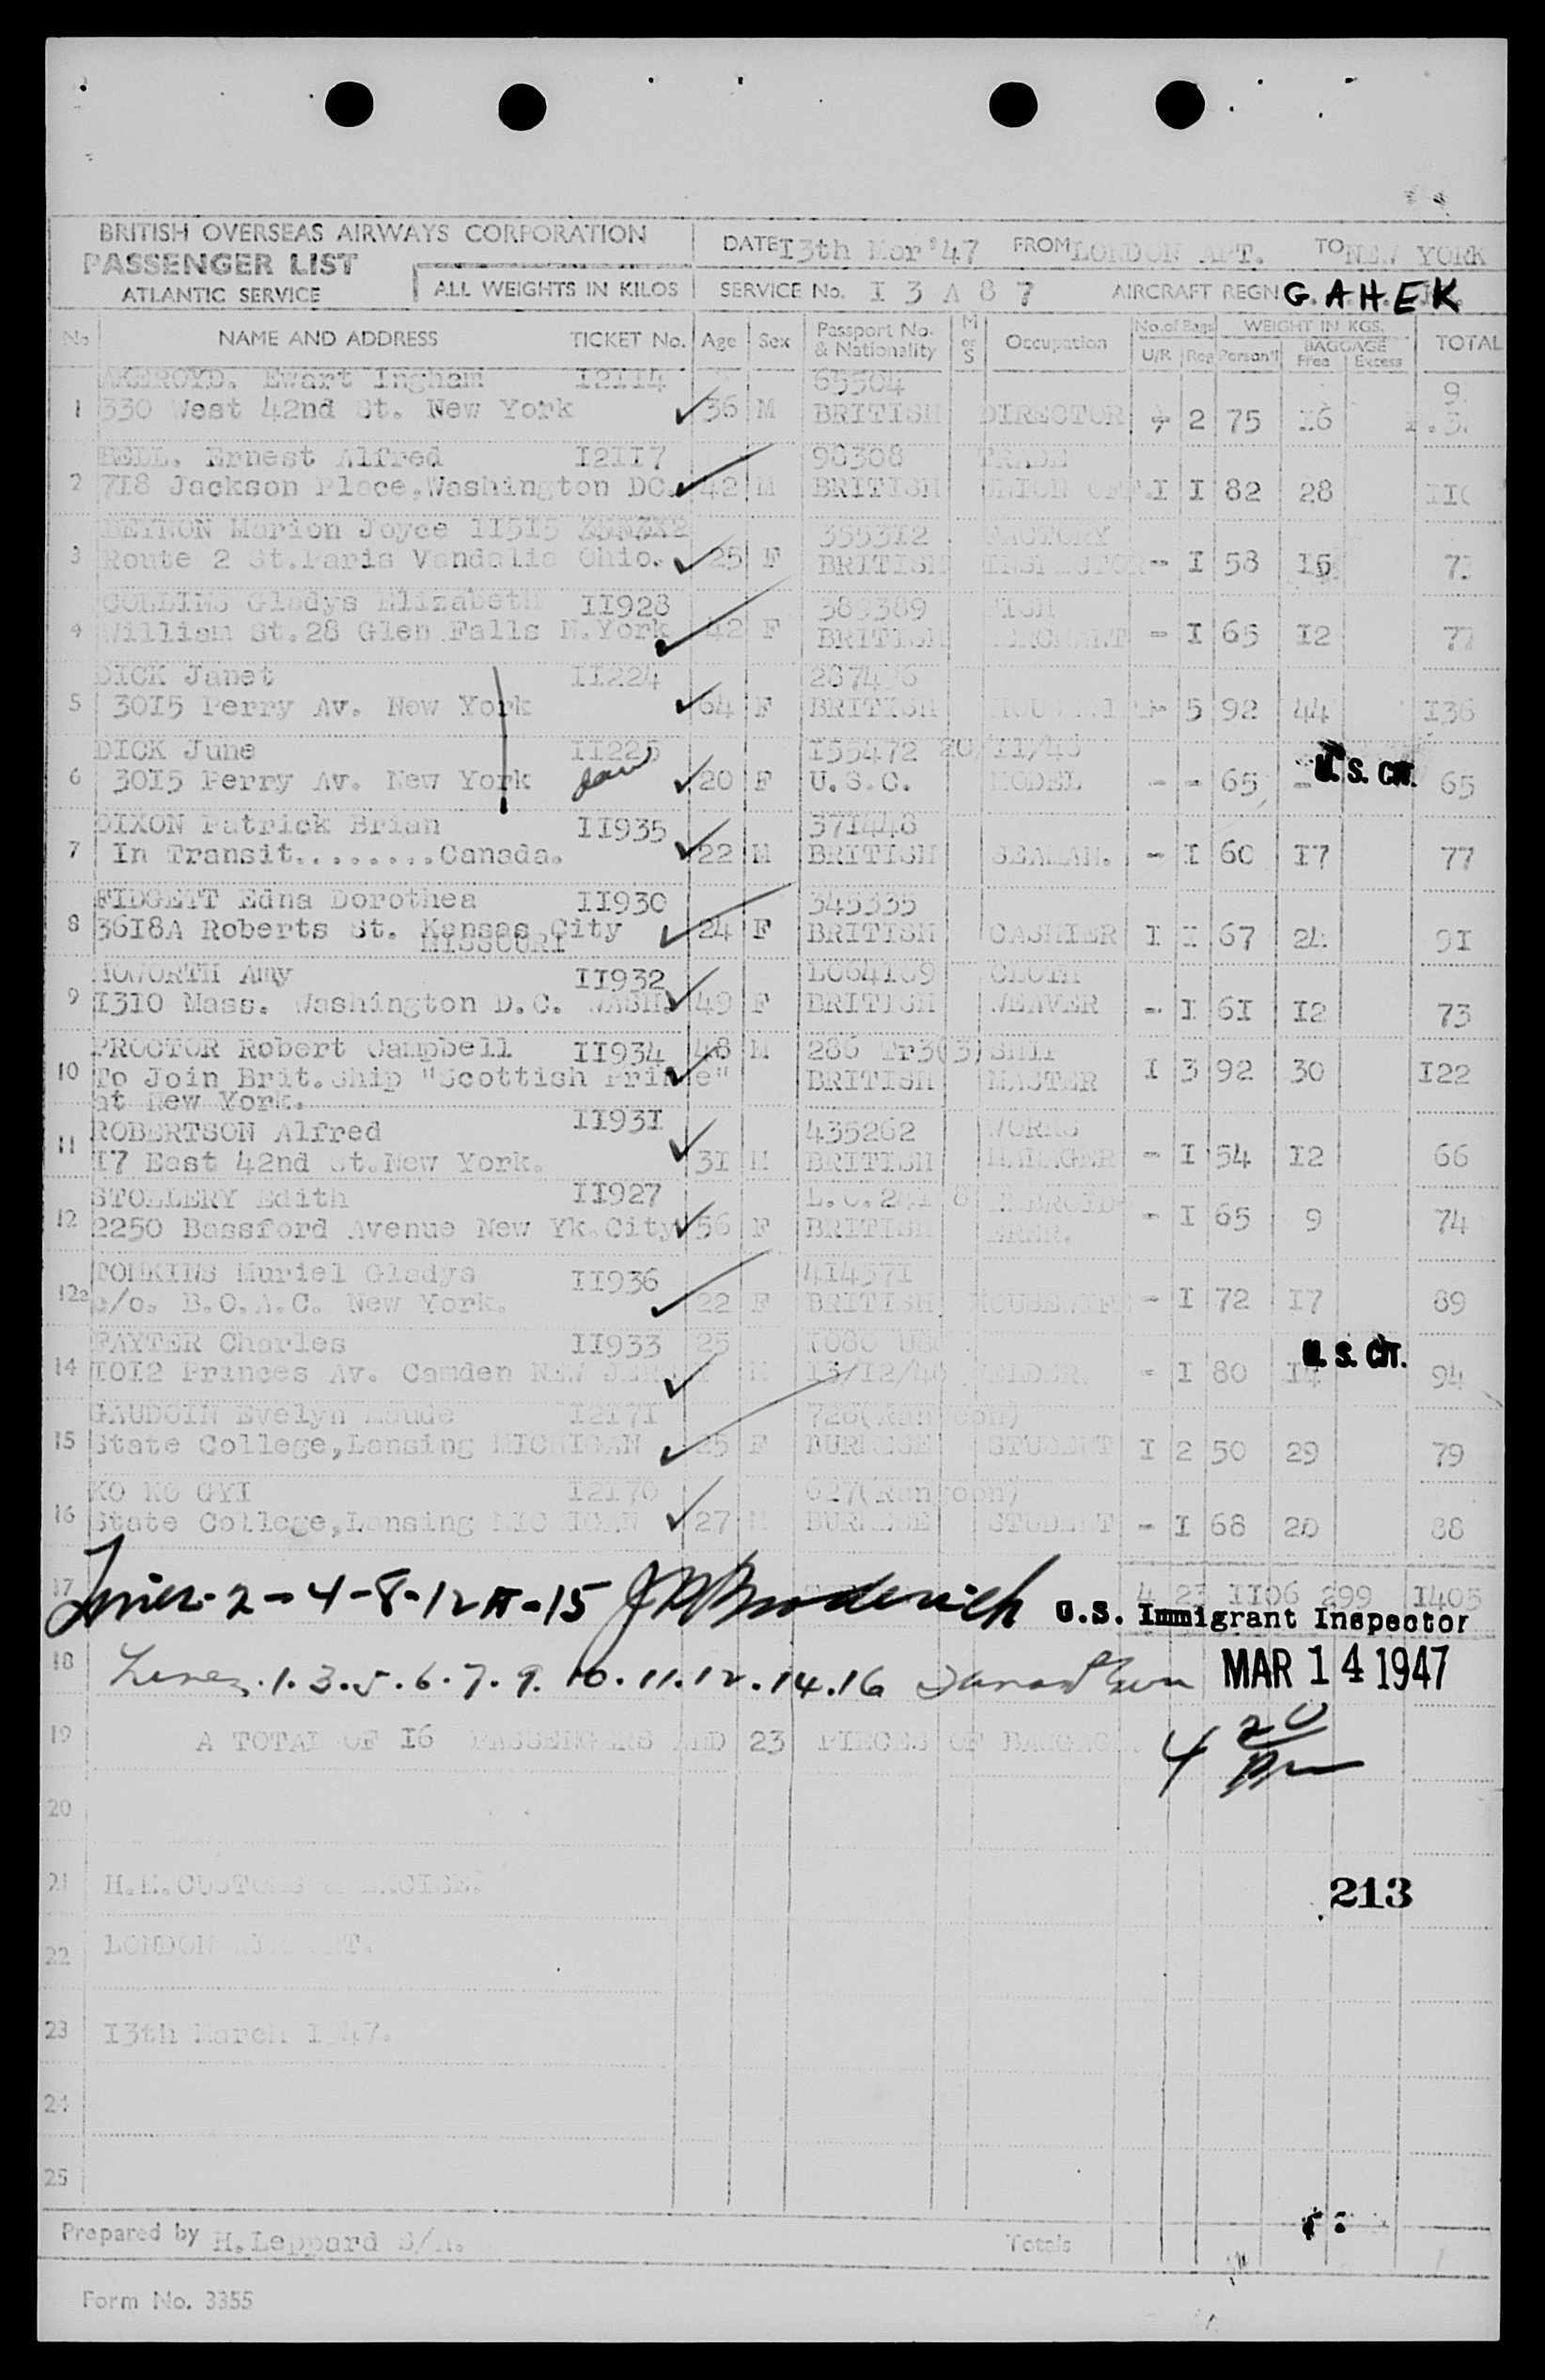 BRITISH OVERSEAS AIRWAYS CORPORATION
PASSENGER LIST
ATLANTIC SERVICE
ALL WEIGHTS IN KILOS
DATE I3th Mar '47 FROM LONDON APT. TO NEW YORK
SERVICE No. I 3 A 8 7 AIRCRAFT REGN G.AHEK
No NAME AND ADDRESS TICKET No. Age Sex Passport No. & Nationality M or S Occupation No. of Bags U/R Reg WEIGHT IN KGS. Person'l BAGGAGE Free Excess TOTAL
AKEROYD. Ewart Ingham I2II4 65504
1 330 West 42nd St. New York 36 M BRITISH DIRECTOR 2 75 I6
BELL. Ernest Alfred I2II7 98308 TRADE
2 7I8 Jackson Place,Washington DC. 42 M BRITISH UNION OFF. I I 82 28 II0
BEYNON Marion Joyce II5I5 3553I2 FACTORY
3 Route 2 St.Paris Vandalia Ohio. 25 F BRITISH INSPECTOR - I 58 I5 73
Gladys Elizabeth II928 389389
4 William St.28 Glen Falls N.York 42 F BRITISH - I 65 I2 77
DICK Janet II224
5 30I5 Perry Av. New York 64 F BRITISH 5 92 44 I36
DICK June II225 I55472 20/II/46
6 30I5 Perry Av. New York 20 F U.S.C. MODEL - - 65 - U.S. CIT. 65
DIXON Patrick Brian II935 37I448
7 In Transit........Canada. 22 M BRITISH SEAMAN. - I 60 I7 77
FIDGETT Edna Dorothea II930 345335
8 36I8A Roberts St. Kansas City 24 F BRITISH CASHIER I I 67 24 9I
MISSOURI
HOWORTH Amy II932 L064I09 CLOTH
9 I3I0 Mass. Washington D.C. WASH. 49 F BRITISH WEAVER - I 6I I2 73
PROCTOR Robert Campbell II934 48 M 286 Tr3(3) SHIP
10 To Join Brit.Ship "Scottish Prince" BRITISH MASTER I 3 92 30 I22
at New York.
ROBERTSON Alfred II93I 435262 WORKS
11 I7 East 42nd St.New York. 3I M BRITISH MANAGER - I 54 I2 66
STOLLERY Edith II927 EMBROID-
12 2250 Bassford Avenue New Yk.City 56 F BRITISH ERER. - I 65 9 74
TOMKINS Muriel Gladys II936 4I457I
12a c/o. B.O.A.C. New York. 22 F BRITISH HOUSEWIFE - I 72 I7 89
FAYTER Charles II933 25
14 I0I2 Princes Av. Camden NEW JERSEY M I3/I2/46 WELDER. - I 80 I4 U.S. CIT. 94
GAUDOIN Evelyn Maude I2I7I 728(Rangoon)
15 State College,Lansing MICHIGAN 25 F BURMESE STUDENT I 2 50 29 79
KO KO GYI I2I70 627(Rangoon)
16 State College,Lansing MICHIGAN 27 M BURMESE STUDENT - I 68 20 88
17 4 23 II06 299 I405
Lines-2-4-8-12A-15 J Broderick U.S. Immigrant Inspector
18 Lines.1.3.5.6.7.9.10.11.12.14.16 MAR 14 1947
19 A TOTAL OF I6 PASSENGERS AND 23 PIECES OF BAGGAGE. 4 20 pm
20
21 H.M.CUSTOMS & EXCISE. 213
22 LONDON AIRPORT.
23 I3th March I947.
24
25
Prepared by H.Leppard S/A. Totals
Form No. 3355